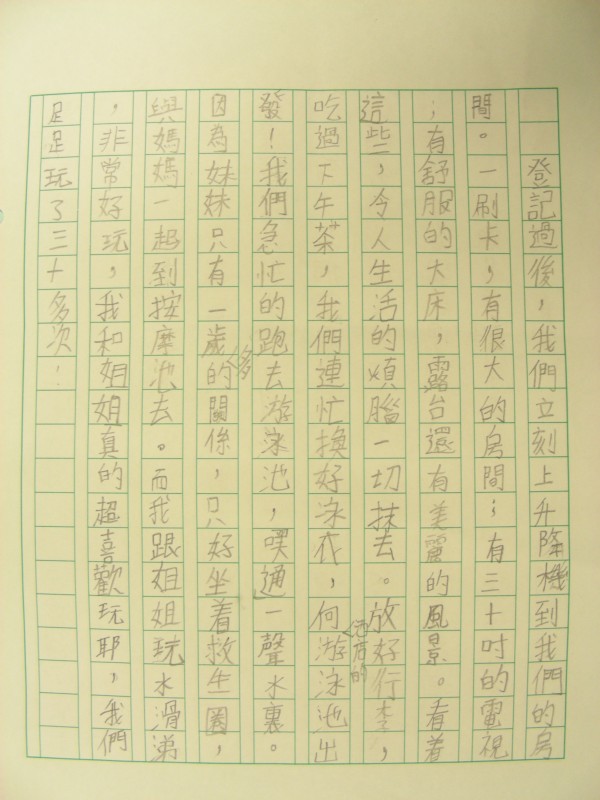 登記過後，我們立刻上升降機到我們的房
間。一刷卡，有很大的房間；有三十吋的電視
；有舒服的大床，露台還有美麗的風景。看着
這些，令人生活的煩腦一切抹去。放好行李，
吃過下午茶，我們連忙換好泳衣，向酒店的游泳池出
發！我們急忙的跑去游泳池，噗通一聲水裏。
因為妹妹只有一歲多的關係，只好坐着救生圈，
與媽媽一起到按摩池去。而我跟姐姐玩水滑涕
，非常好玩，我和姐姐真的超喜歡玩耶，我們
足足玩了三十多次！